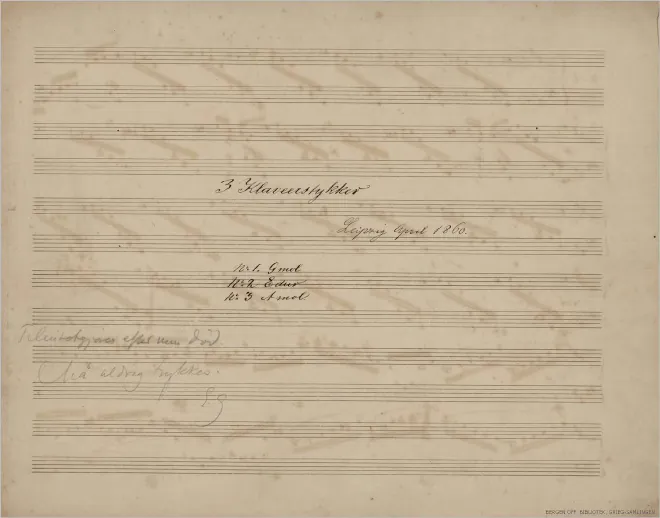 3 Klaverstykker
Leipzig April 1860.
No 1. Gmol
No 2 Edur
No 3 Amol
efter min Død
Må aldrig trykkes.
EG
BERGEN OFF. BIBLIOTEK. GRIEG-SAMLINGEN